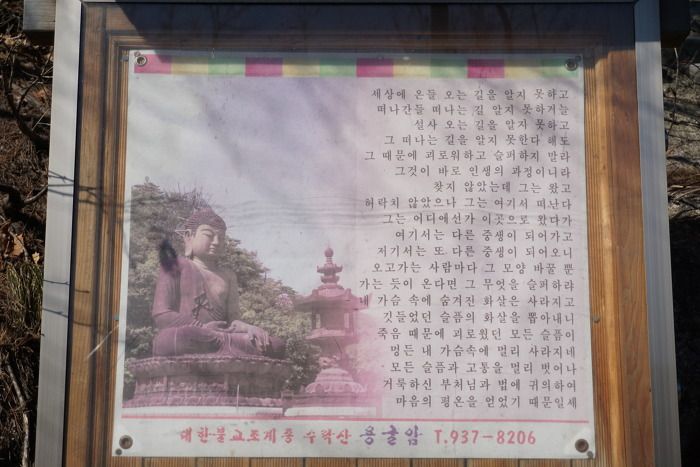 세상에 온들 오는 길을 알지 못하고
떠나간들 떠나는 길 알지 못하거늘
설사 오는 길을 알지 못하고
그 떠나는 길을 알지 못한다 해도
그 때문에 괴로워하고 슬퍼하지 말라
그것이 바로 인생의 과정이니라
찾지 않았는데 그는 왔고
허락치 않았으나 그는 여기서 떠난다
그는 어디에선가 이곳으로 왔다가
여기서는 다른 중생이 되어가고
저기서는 또 다른 중생이 되어오니
오고가는 사람마다 그 모양 바꿀 뿐
가는 듯이 온다면 그 무엇을 슬퍼하랴
내 가슴 속에 숨겨진 화살은 사라지고
깃들었던 슬픔의 화살을 뽑아내니
죽음 때문에 괴로웠던 모든 슬픔이
멍든 내 가슴속에 멀리 사라지네
모든 슬픔과 고통을 멀리 벗어나
거룩하신 부처님과 법에 귀의하여
마음의 평온을 얻었기 때문일세
대한불교조계종 수락산 용굴암 T.937-8206